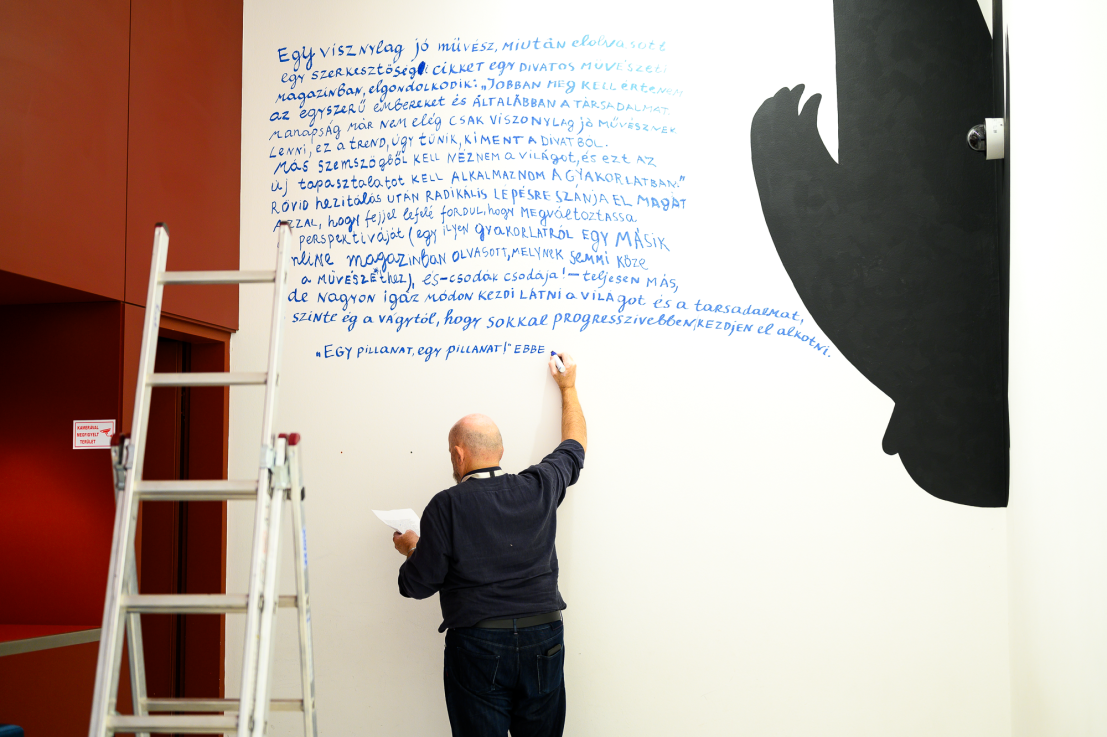 Egy visznylag jó művész, miután elolvasott
egy szerkesztőségi cikket egy divatos művészeti
magazinban, elgondolkodik: „Jobban meg kell értenem
az egyszerű embereket és általában a társadalmat.
Manapság már nem elég csak viszonylag jó művésznek
lenni, ez a trend, úgy tűnik, kiment a divatból.
Más szemszögből kell néznem a világot, és ezt az
új tapasztalatot kell alkalmaznom a gyakorlatban.”
Rövid hezitálás után radikális lépésre szánja el magát
azzal, hogy fejjel lefelé fordul, hogy megváltoztassa
perspektíváját (egy ilyen gyakorlatról egy másik
online magazinban olvasott, melynek semmi köze
a művészethez), és – csodák csodája! – teljesen más,
de nagyon igaz módon kezdi látni a világot és a társadalmat,
szinte ég a vágytól, hogy sokkal progresszívebben, kezdjen el alkotni.
„Egy pillanat, egy pillanat!” EBBE
KAMERÁVAL
MEGFIGYELT
TERÜLET